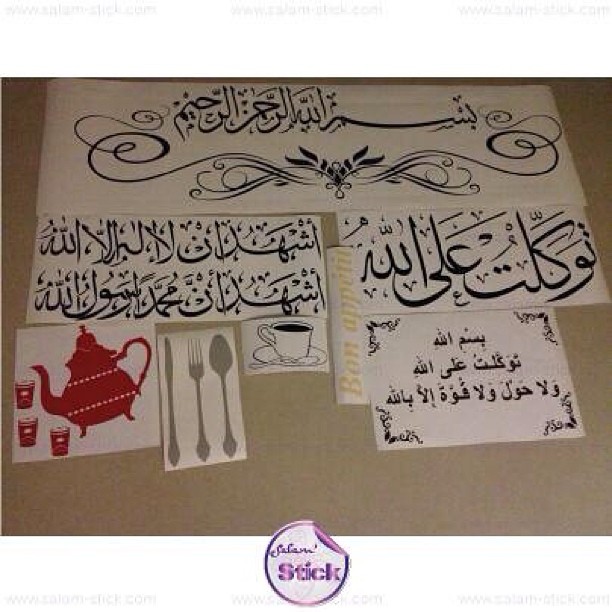 www.salam-stick.com www.salam-stick.com www.salam-stick.com
بسم الله الرحمن الرحيم
أشهد أن لا إله إلا الله
أشهد أن محمدا رسول الله
توكلت على الله
Bon appétit
بسم الله
توكلت على الله
ولا حول ولا قوة إلا بالله
Salam'
Stick
www.salam-stick.com www.salam-stick.com www.salam-stick.com